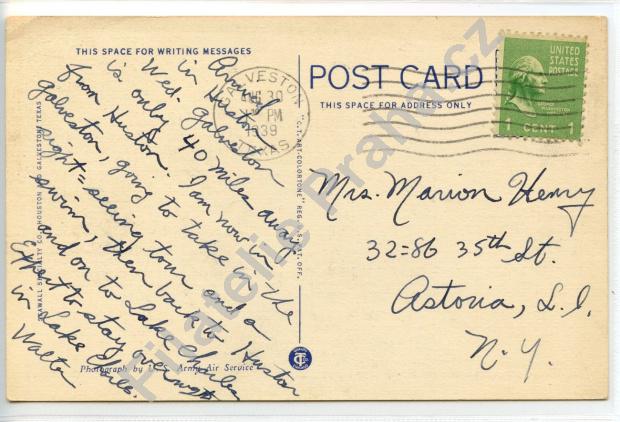 THIS SPACE FOR WRITING MESSAGES
POST CARD
THIS SPACE FOR ADDRESS ONLY
GALVESTON
AUG 30
PM
1939
TEXAS
UNITED
STATES
POSTAGE
1 CENT 1
Arrived
in Huston
Wed. Galveston
is only 40 miles away
from Huston. I am now in
galveston, going to take in the
sight=seeing tour and a
swim, then back to Huston
and on to Lake Charles
Expect to stay overnight
in Lake Charles.
Walter
Mrs. Marion Henry
32=86 35th St.
Astoria, L.I.
N.Y.
"C.T. ART-COLORTONE" REG. U.S. PAT. OFF.
SPECIALTY CO., HOUSTON AND GALVESTON, TEXAS
Photograph by Army Air Service
Filatelie Praha.cz